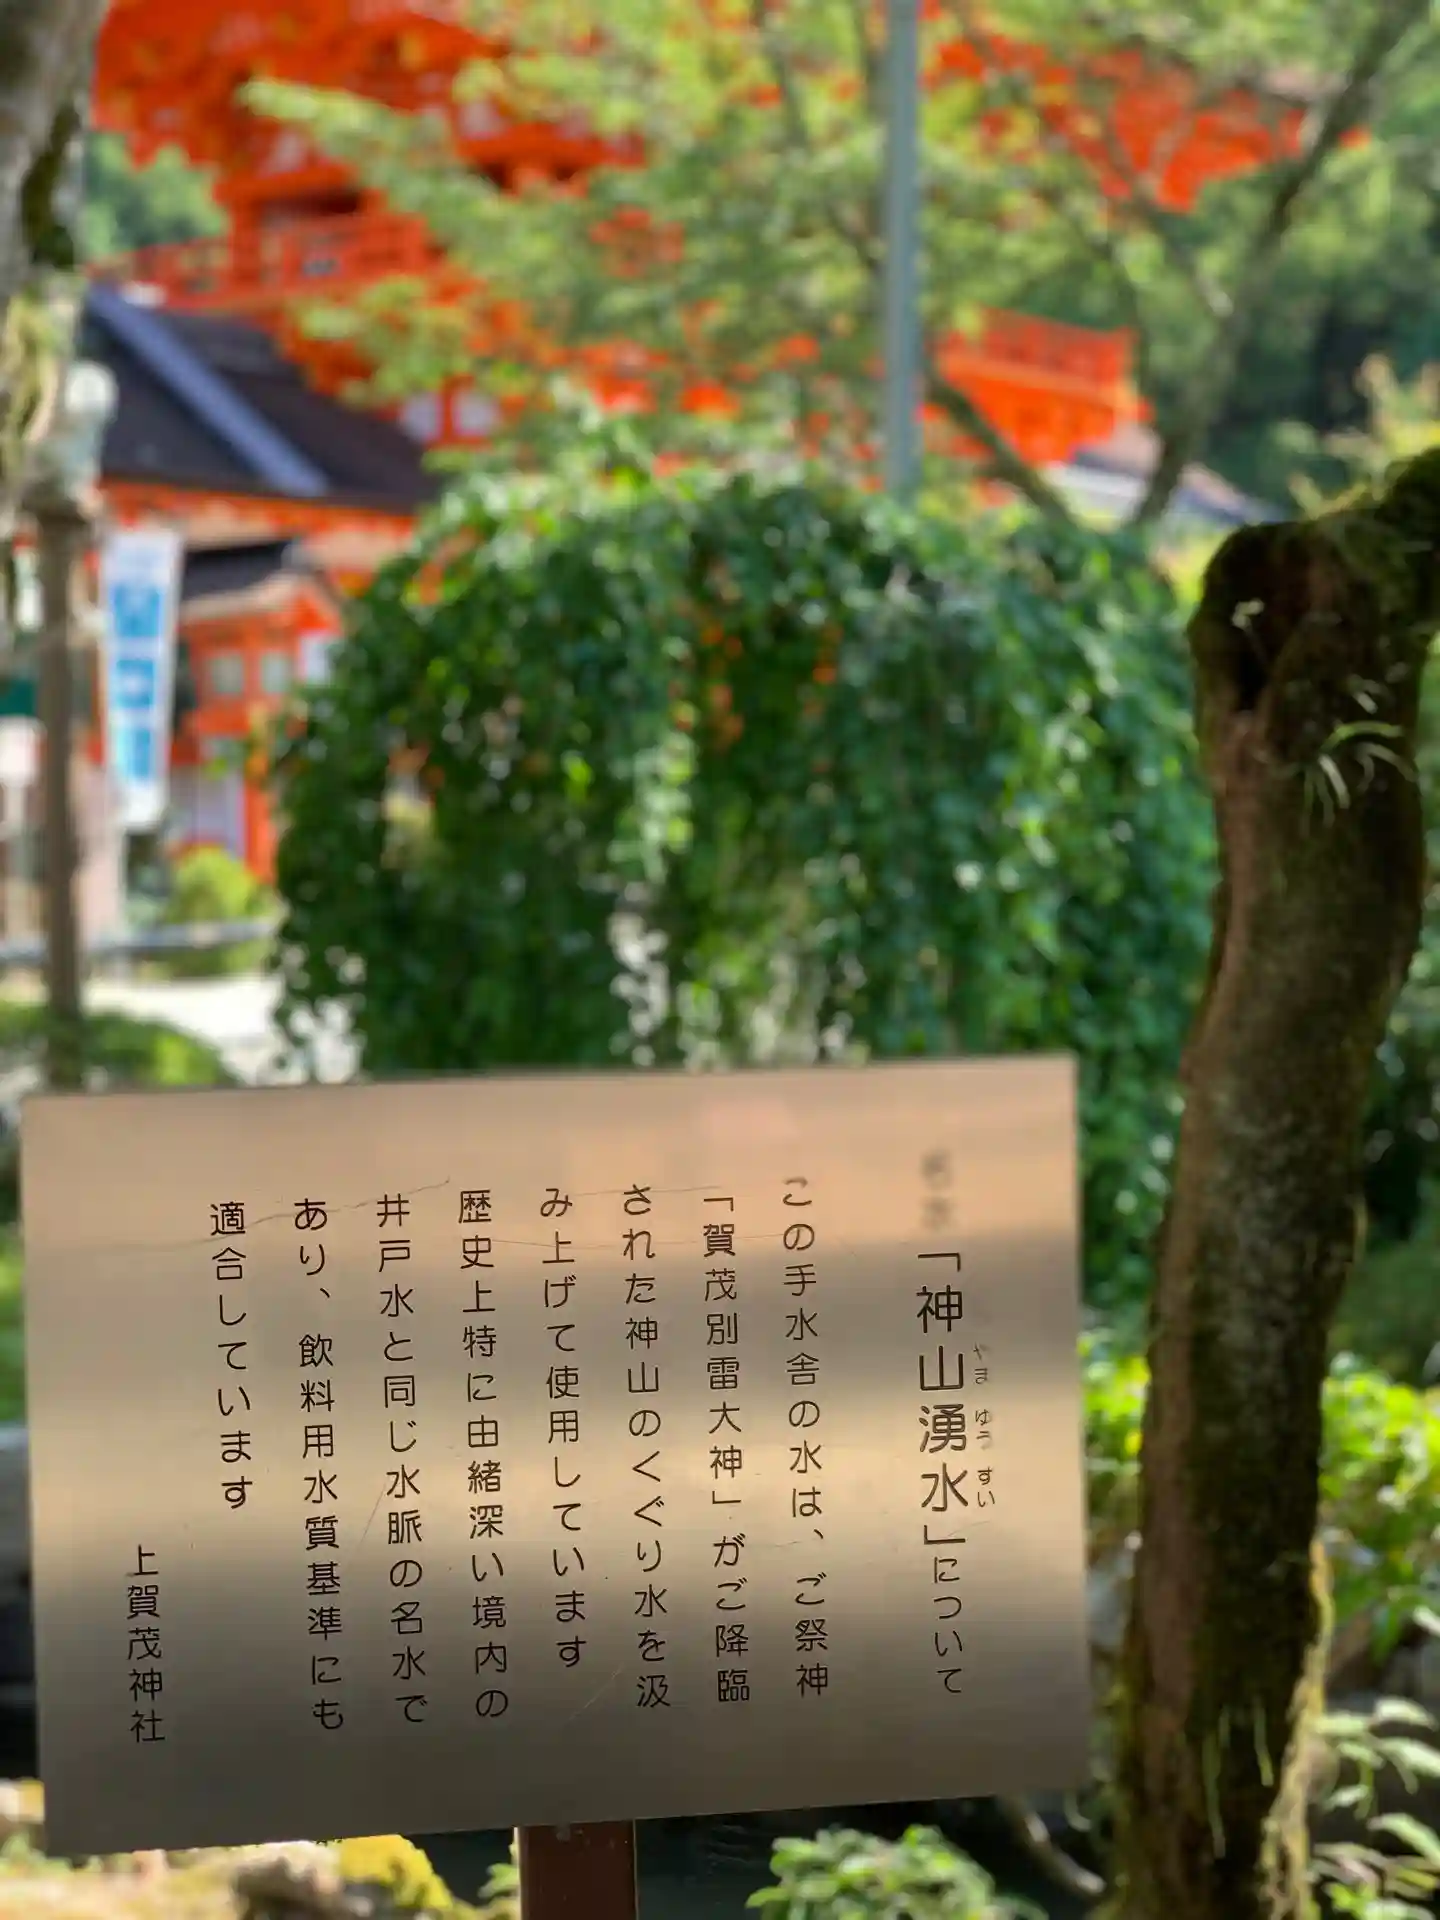 「神山湧水」について
やま ゆう すい
この手水舎の水は、ご祭神
「賀茂別雷大神」がご降臨
された神山のくぐり水を汲
み上げて使用しています
歴史上特に由緒深い境内の
井戸水と同じ水脈の名水で
あり、飲料用水質基準にも
適合しています
上賀茂神社